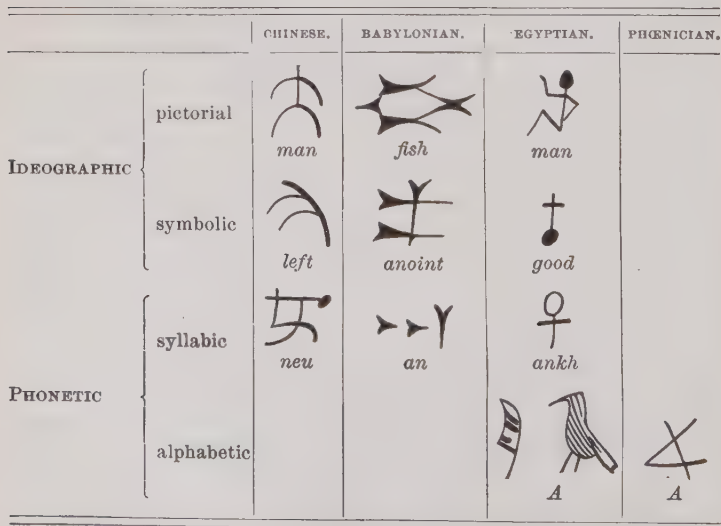 CHINESE. BABYLONIAN. EGYPTIAN. PHŒNICIAN.
IDEOGRAPHIC
pictorial
man fish man
symbolic
left anoint good
PHONETIC
syllabic
neu an ankh
alphabetic
A A